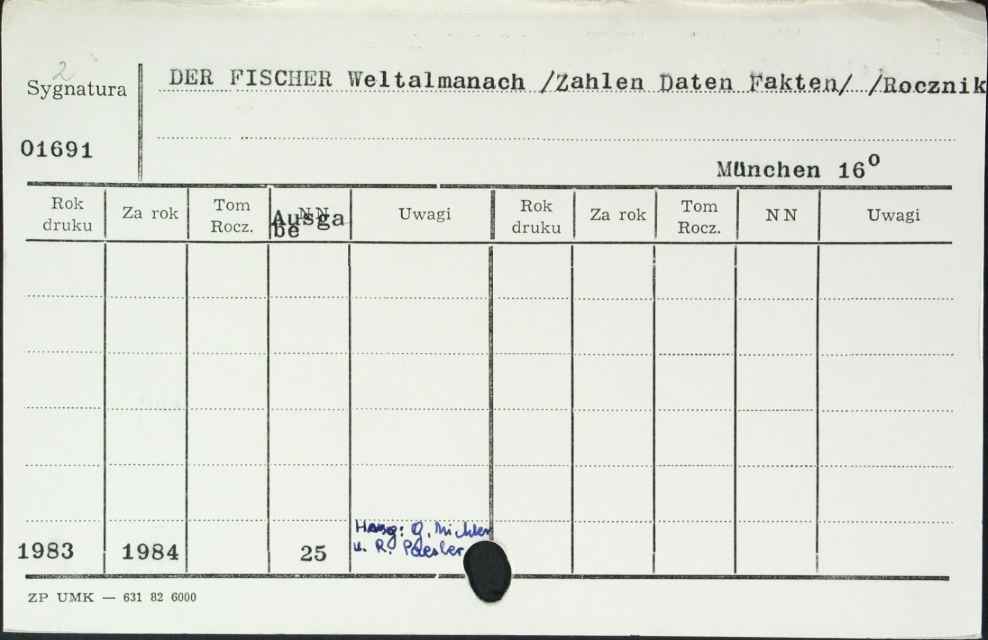 2
Sygnatura
DER FISCHER Weltalmanach /Zahlen Daten Fakten/ /Rocznik
01691
München 16°
Rok druku Za rok Tom Rocz. NN Ausgabe Uwagi Rok druku Za rok Tom Rocz. NN Uwagi
1983 1984 25
u. R.
ZP UMK — 631 82 6000